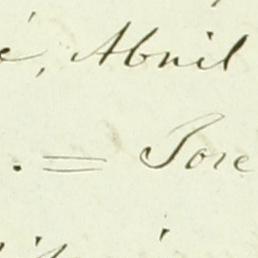 é, Abril
. = Jose